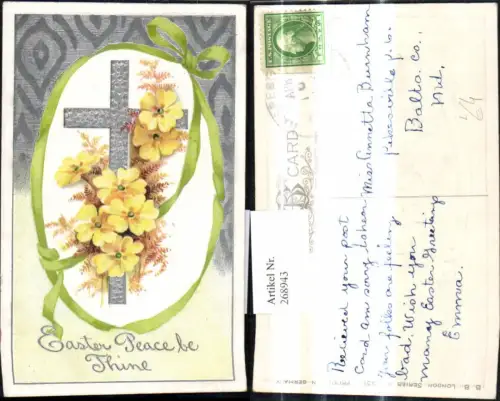 Easter Peace be
Thine
U.S. POSTAGE
CARD
Miss Annetta Burnham
Pikesville P.O.
Balto. Co.,
Md.
Recieved your post
Card am sorry to hear
your folks are feeling
bad. Wish you
many Easter Greeting
Emma.
Artikel Nr.
268943
B. B. LONDON SERIES